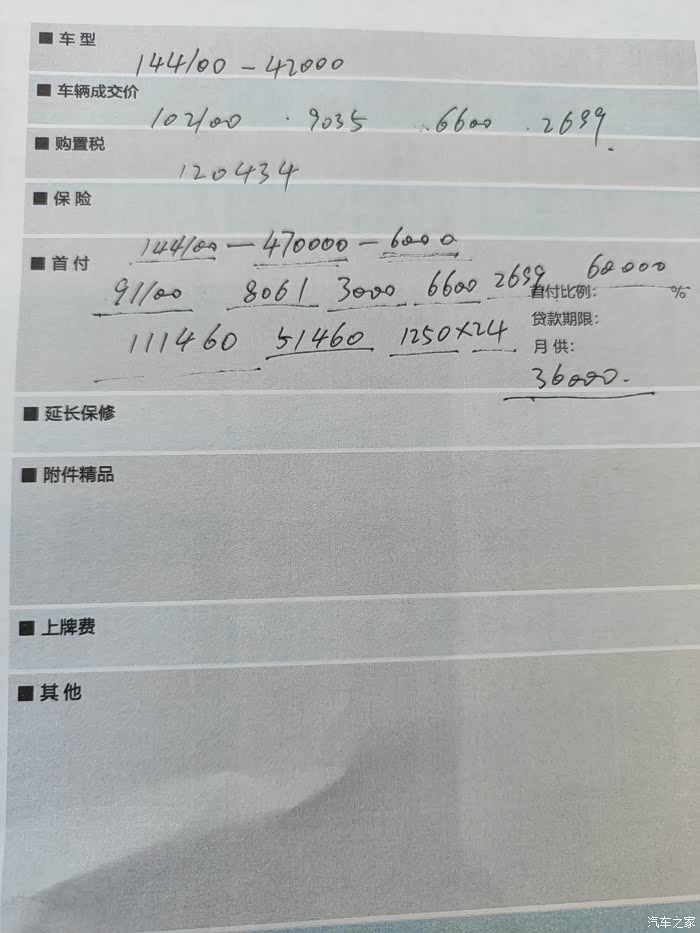 ■ 车型
144100 - 42000
■ 车辆成交价
102100 . 9035 .. 6600 . 2699.
■ 购置税
120434
■ 保险
144100 - 470000 - 6000
■ 首付
91100 8061 3000 6600 2699 60000
首付比例: %
贷款期限:
111460 51460 1250×24
月供:
36000.
■ 延长保修
■ 附件精品
■ 上牌费
■ 其他
汽车之家